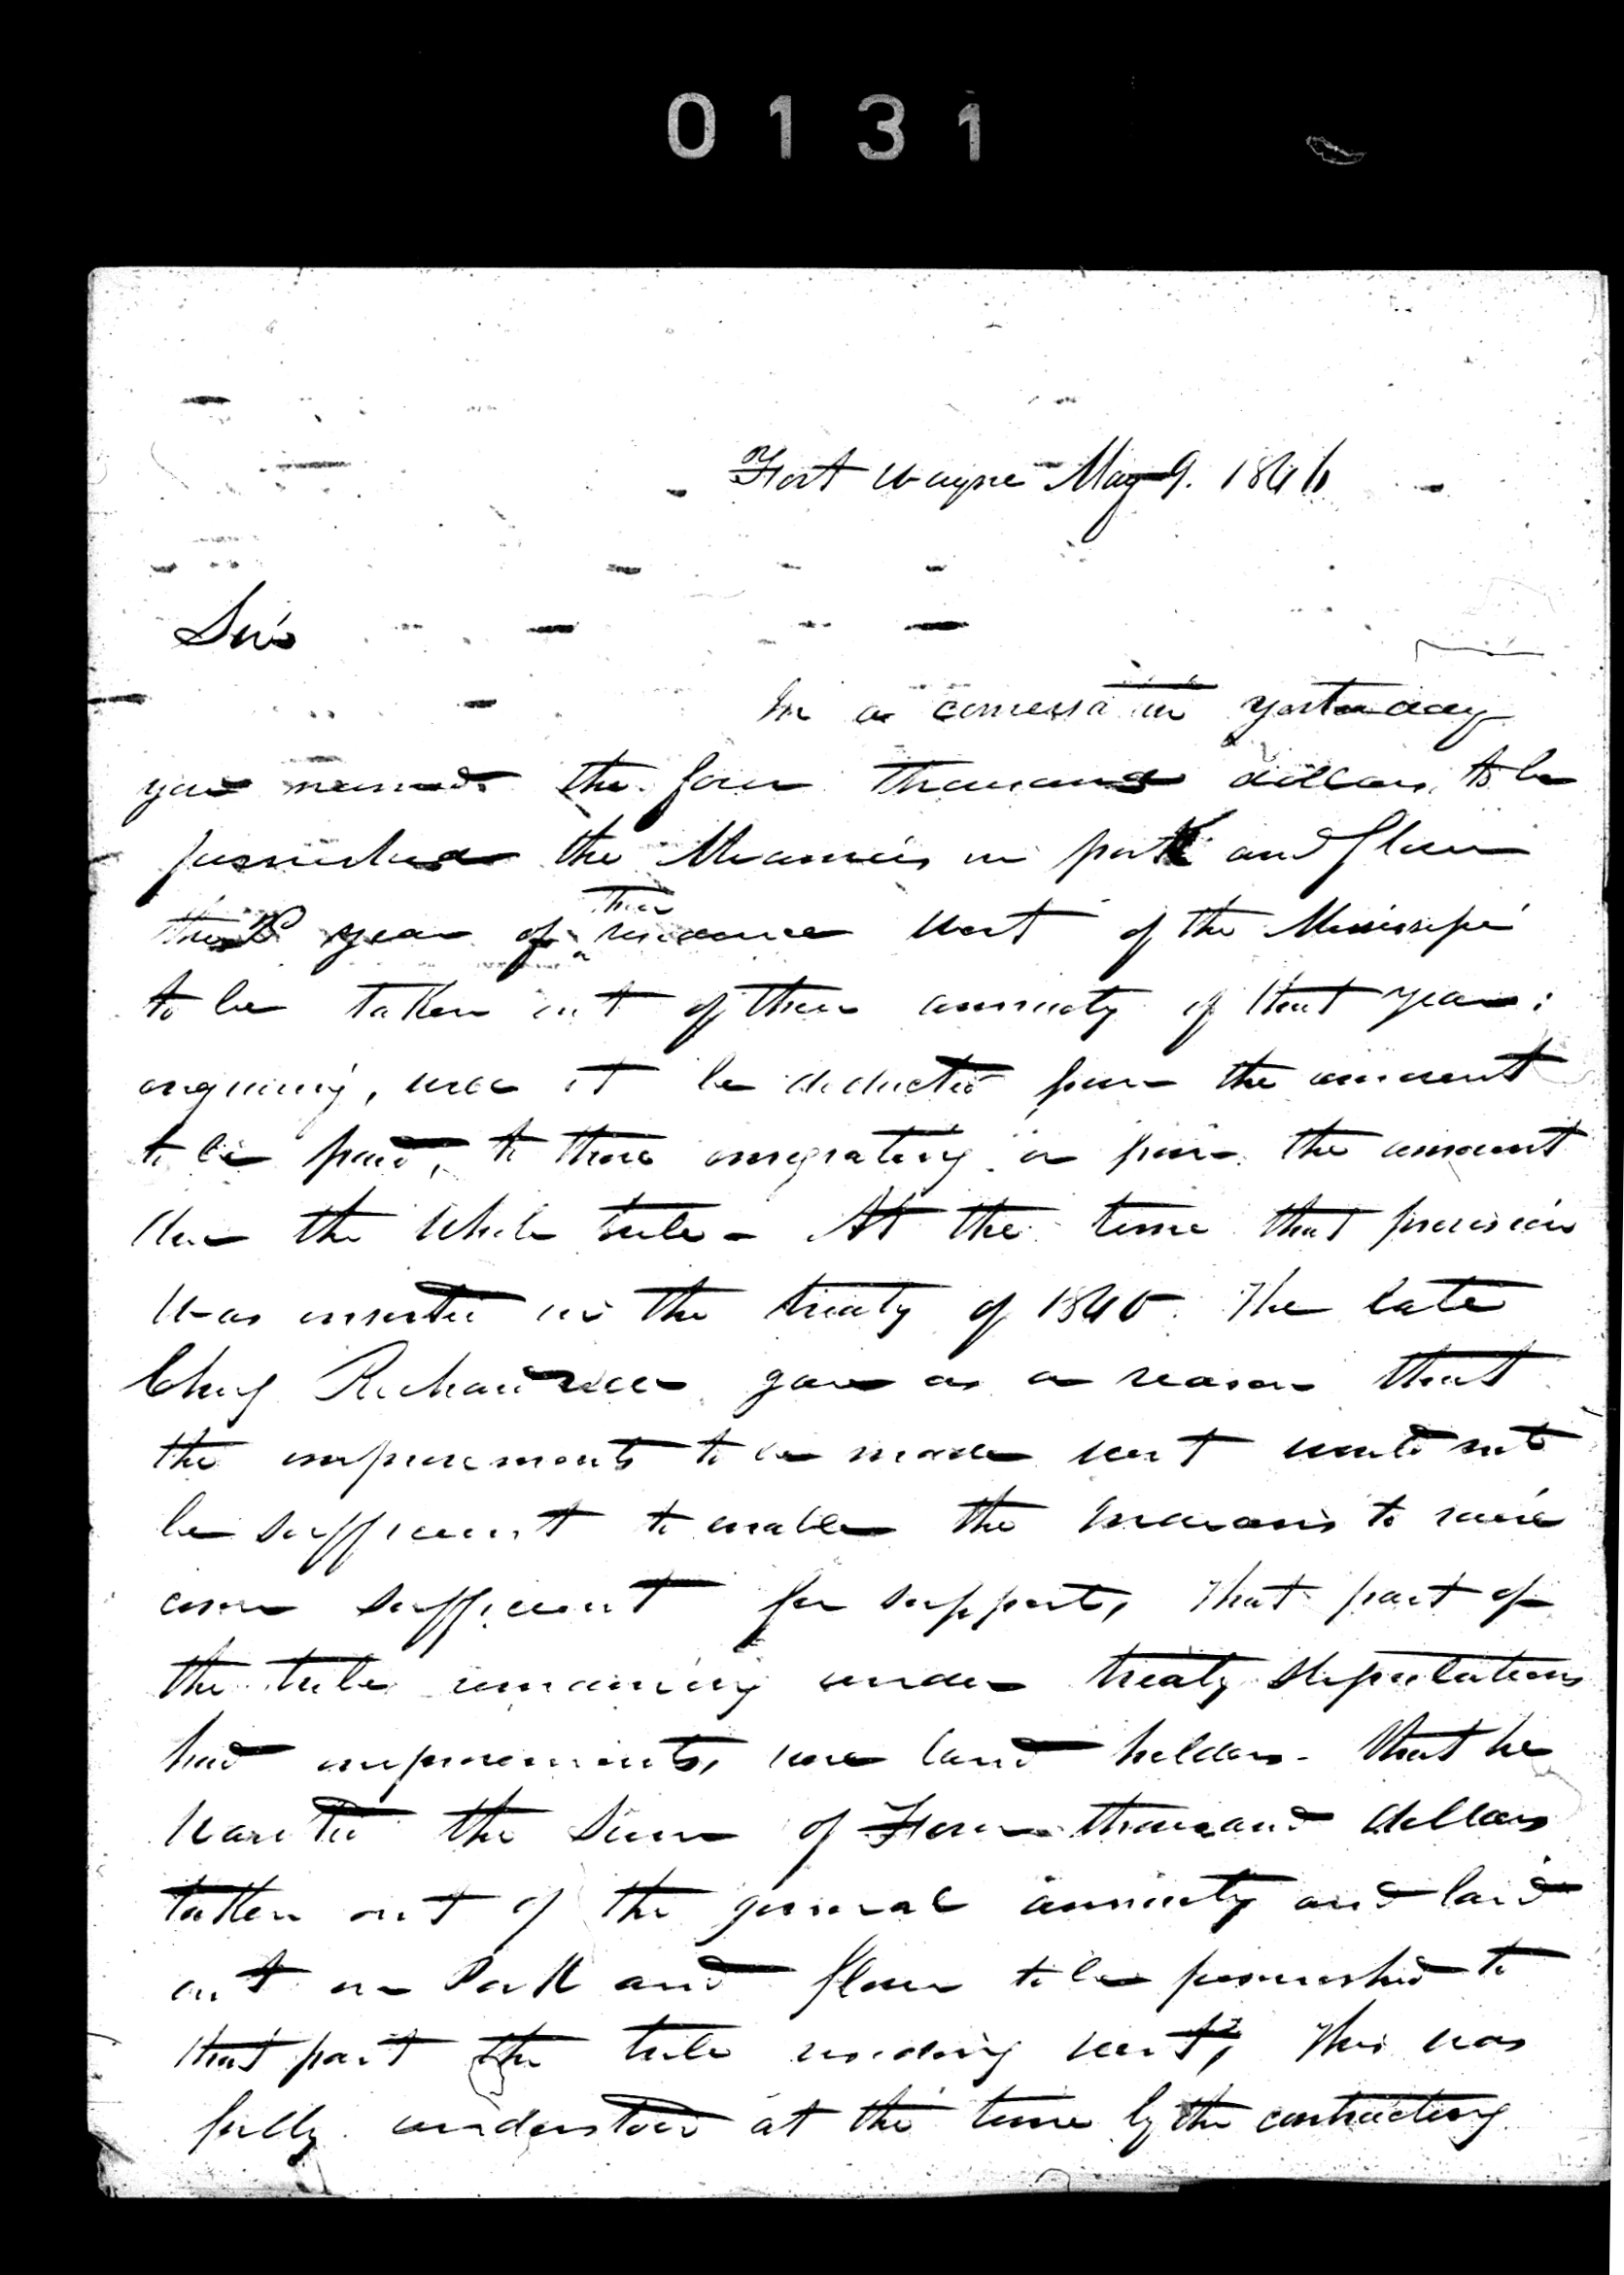 0131
Fort Wayne May 9. 1846
Sir
In a conversation yesterday
you named the four thousand dollars to be
furnished the Miamies in pork and flour
the 2d year of their residence west of the Missisipi
to be taken out of their annuity of that year:
enquiring, was it be deducted from the amount
to be paid, to those emigrating or from the amount
due the whole tribe - At the time that provision
was inserted in the treaty of 1840. The late
Chief Richardville gave as a reason that
the improvements to be made west would not
be sufficient to enable the Indians to raise
corn sufficient for support, that part of
the tribe remaining under treaty stipulations
had improvements, were land holders - that he
wanted the sum of Four thousand dollars
taken out of the general annuity and laid
out in Pork and flour to be furnished to
that part the tribe residing west, This was
fully understood at the time by the contracting